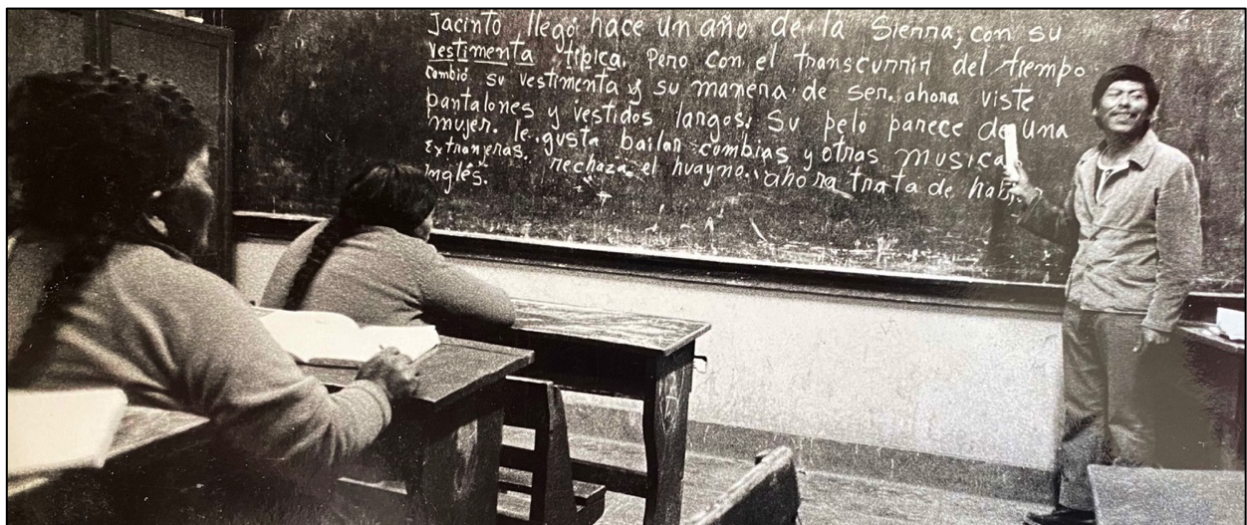 Jacinto llegó hace un año de la Sierra, con su
vestimenta típica. Pero con el transcurrir del tiempo
cambió su vestimenta y su manera de ser. ahora viste
pantalones y vestidos largos. Su pelo parece de una
mujer. le gusta bailar cumbias y otras musicas
extranjeras. rechaza el huayno. ahora trata de
Inglés.